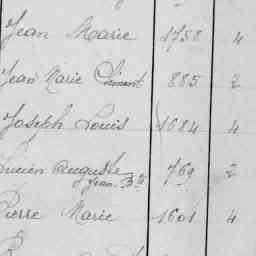 Jean Marie 1758 4
Jean Marie Clément 885 2
Joseph Louis 1684 4
Lucien Auguste 769 2
Jean Bte
Pierre Marie 1601 4